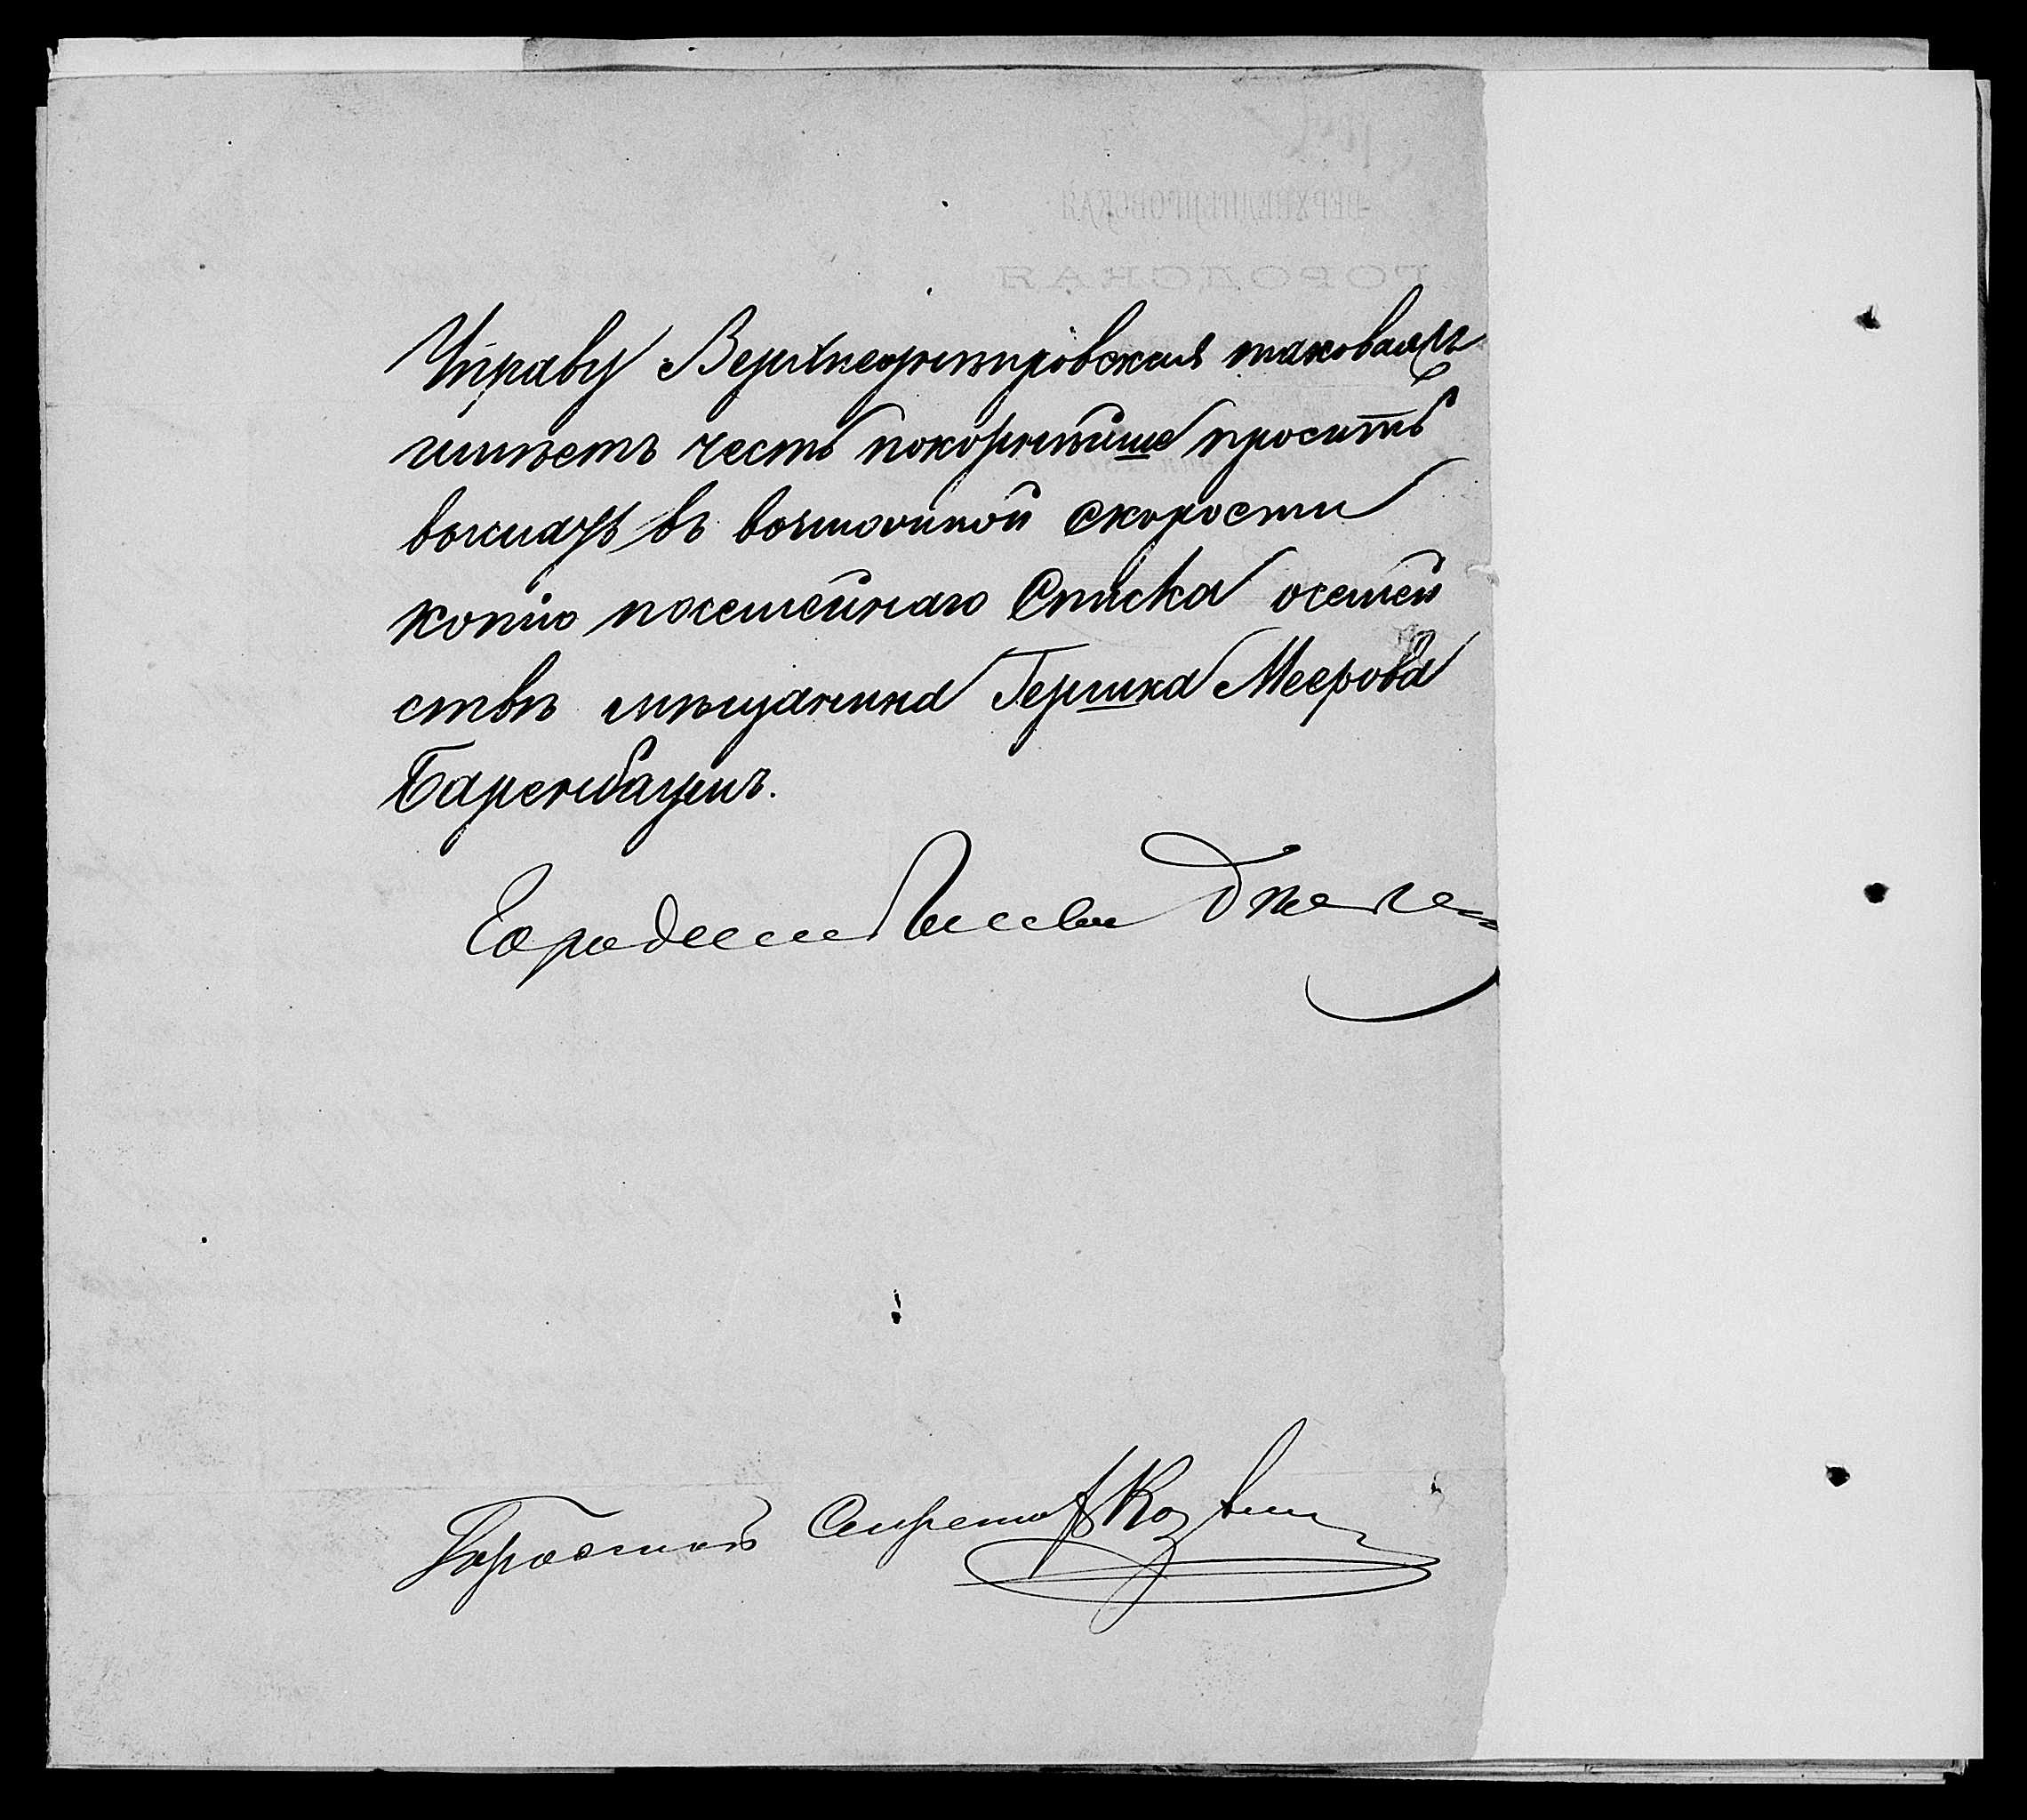 Управу Верхнеднѣпровская таковая
имѣетъ честь покорнѣйше просить
выслать въ возможной скорости
копію посемейнаго Списка о семей
ствѣ мѣщанина Гершка Меерова
Баренбаумъ.
Городской Голова
Городской Секретарь